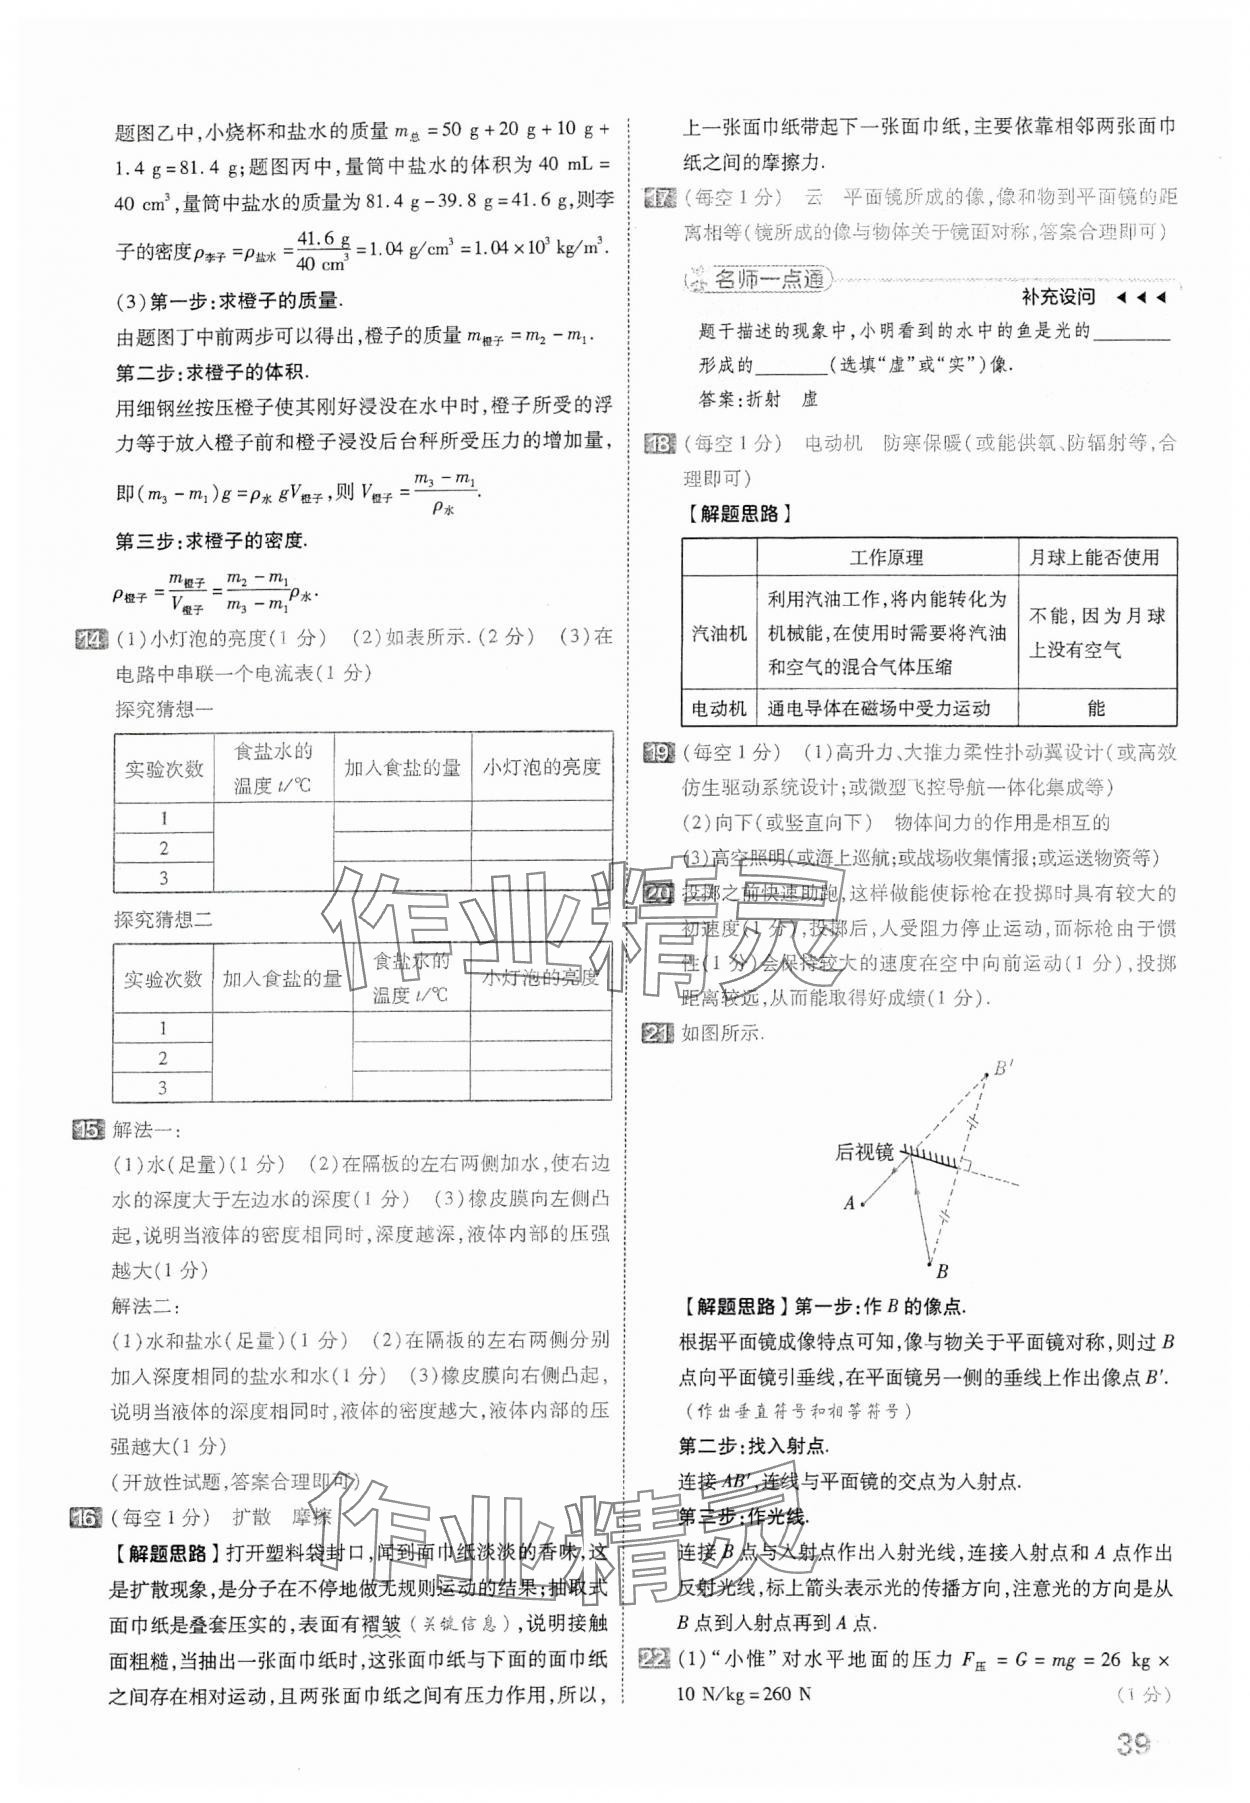 题图乙中,小烧杯和盐水的质量 m总 = 50 g + 20 g + 10 g +
1.4 g = 81.4 g;题图丙中,量筒中盐水的体积为 40 mL =
40 cm³,量筒中盐水的质量为 81.4 g - 39.8 g = 41.6 g,则李
子的密度ρ李子 = ρ盐水 = 41.6 g/40 cm³ = 1.04 g/cm³ = 1.04×10³ kg/m³.
(3)第一步:求橙子的质量.
由题图丁中前两步可以得出,橙子的质量 m橙子 = m₂ - m₁.
第二步:求橙子的体积.
用细钢丝按压橙子使其刚好浸没在水中时,橙子所受的浮
力等于放入橙子前和橙子浸没后台秤所受压力的增加量,
即(m₃ - m₁)g = ρ水 gV橙子,则 V橙子 = (m₃ - m₁)/ρ水.
第三步:求橙子的密度.
ρ橙子 = m橙子/V橙子 = (m₂ - m₁)/(m₃ - m₁)ρ水.
14 (1)小灯泡的亮度(1 分) (2)如表所示.(2 分) (3)在
电路中串联一个电流表(1 分)
探究猜想一
实验次数 食盐水的温度 t/℃ 加入食盐的量 小灯泡的亮度
1
2
3
探究猜想二
实验次数 加入食盐的量 食盐水的温度 t/℃ 小灯泡的亮度
1
2
3
15 解法一:
(1)水(足量)(1 分) (2)在隔板的左右两侧加水,使右边
水的深度大于左边水的深度(1 分) (3)橡皮膜向左侧凸
起,说明当液体的密度相同时,深度越深,液体内部的压强
越大(1 分)
解法二:
(1)水和盐水(足量)(1 分) (2)在隔板的左右两侧分别
加入深度相同的盐水和水(1 分) (3)橡皮膜向右侧凸起,
说明当液体的深度相同时,液体的密度越大,液体内部的压
强越大(1 分)
(开放性试题,答案合理即可)
16 (每空 1 分) 扩散 摩擦
【解题思路】打开塑料袋封口,闻到面巾纸淡淡的香味,这
是扩散现象,是分子在不停地做无规则运动的结果;抽取式
面巾纸是叠套压实的,表面有褶皱(关键信息),说明接触
面粗糙,当抽出一张面巾纸时,这张面巾纸与下面的面巾纸
之间存在相对运动,且两张面巾纸之间有压力作用,所以,
上一张面巾纸带起下一张面巾纸,主要依靠相邻两张面巾
纸之间的摩擦力.
17 (每空 1 分) 云 平面镜所成的像,像和物到平面镜的距
离相等(镜所成的像与物体关于镜面对称,答案合理即可)
名师一点通
补充设问 ◀ ◀ ◀
题干描述的现象中,小明看到的水中的鱼是光的________
形成的________(选填“虚”或“实”)像.
答案:折射 虚
18 (每空 1 分) 电动机 防寒保暖(或能供氧、防辐射等,合
理即可)
【解题思路】
工作原理 月球上能否使用
汽油机 利用汽油工作,将内能转化为机械能,在使用时需要将汽油和空气的混合气体压缩 不能,因为月球上没有空气
电动机 通电导体在磁场中受力运动 能
19 (每空 1 分) (1)高升力、大推力柔性扑动翼设计(或高效
仿生驱动系统设计;或微型飞控导航一体化集成等)
(2)向下(或竖直向下) 物体间力的作用是相互的
(3)高空照明(或海上巡航;或战场收集情报;或运送物资等)
20 投掷之前快速助跑,这样做能使标枪在投掷时具有较大的
初速度(1 分),投掷后,人受阻力停止运动,而标枪由于惯
性(1 分)会保持较大的速度在空中向前运动(1 分),投掷
距离较远,从而能取得好成绩(1 分).
21 如图所示.
B′
后视镜
A
B
【解题思路】第一步:作 B 的像点.
根据平面镜成像特点可知,像与物关于平面镜对称,则过 B
点向平面镜引垂线,在平面镜另一侧的垂线上作出像点 B′.
(作出垂直符号和相等符号)
第二步:找入射点.
连接 AB′,连线与平面镜的交点为入射点.
第三步:作光线.
连接 B 点与入射点作出入射光线,连接入射点和 A 点作出
反射光线,标上箭头表示光的传播方向,注意光的方向是从
B 点到入射点再到 A 点.
22 (1)“小惟”对水平地面的压力 F压 = G = mg = 26 kg ×
10 N/kg = 260 N (1 分)
39
作业精灵
作业精灵